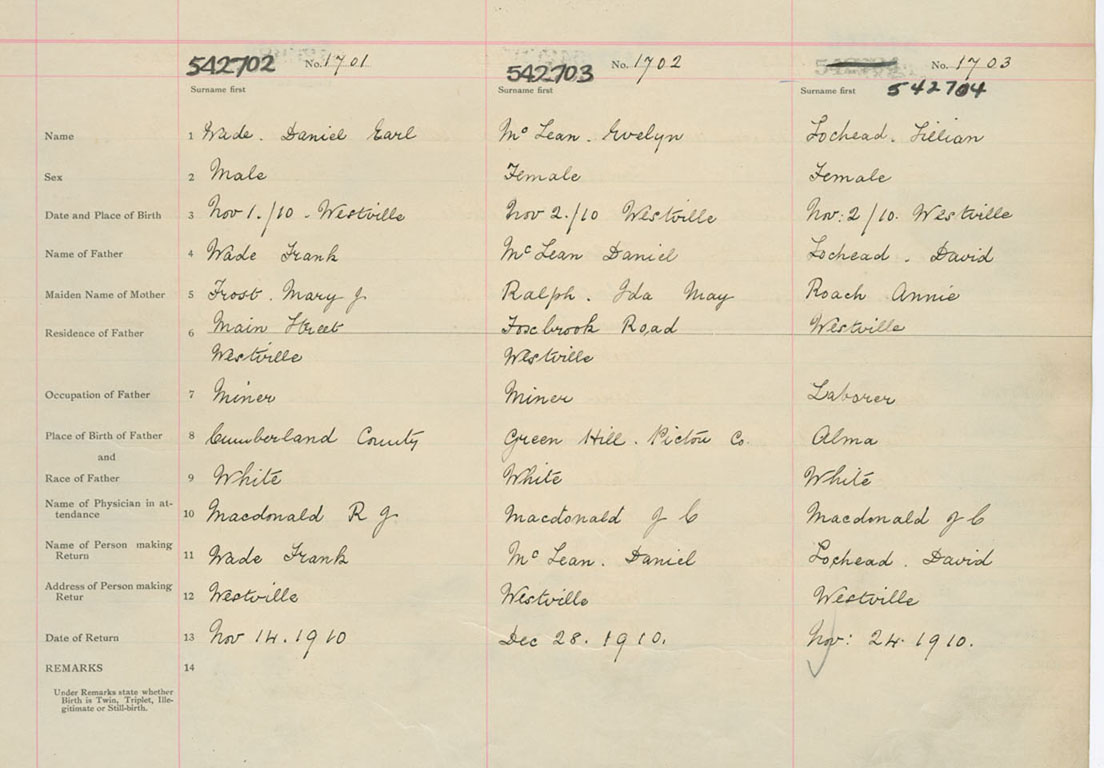 542702 No. 1701 542703 No. 1702 No. 1703
Surname first Surname first Surname first 542704
Name 1 Wade. Daniel Earl Mc Lean. Evelyn Lochead. Lillian
Sex 2 Male Female Female
Date and Place of Birth 3 Nov 1./10 - Westville Nov 2./10 Westville Nov: 2/10. Westville
Name of Father 4 Wade Frank Mc Lean Daniel Lochead. David
Maiden Name of Mother 5 Frost. Mary J. Ralph. Ida May Roach Annie
Residence of Father 6 Main Street Foxbrook Road Westville
Westville Westville
Occupation of Father 7 Miner Miner Laborer
Place of Birth of Father 8 Cumberland County Green Hill. Pictou Co. Alma
and
Race of Father 9 White White White
Name of Physician in at-
tendance 10 Macdonald R J. Macdonald J C Macdonald J C
Name of Person making
Return 11 Wade Frank Mc Lean. Daniel Lochead. David
Address of Person making
Retur 12 Westville Westville Westville
Date of Return 13 Nov 14. 1910 Dec 28. 1910. Nov: 24. 1910.
REMARKS 14
Under Remarks state whether
Birth is Twin, Triplet, Ille-
gitimate or Still-birth.